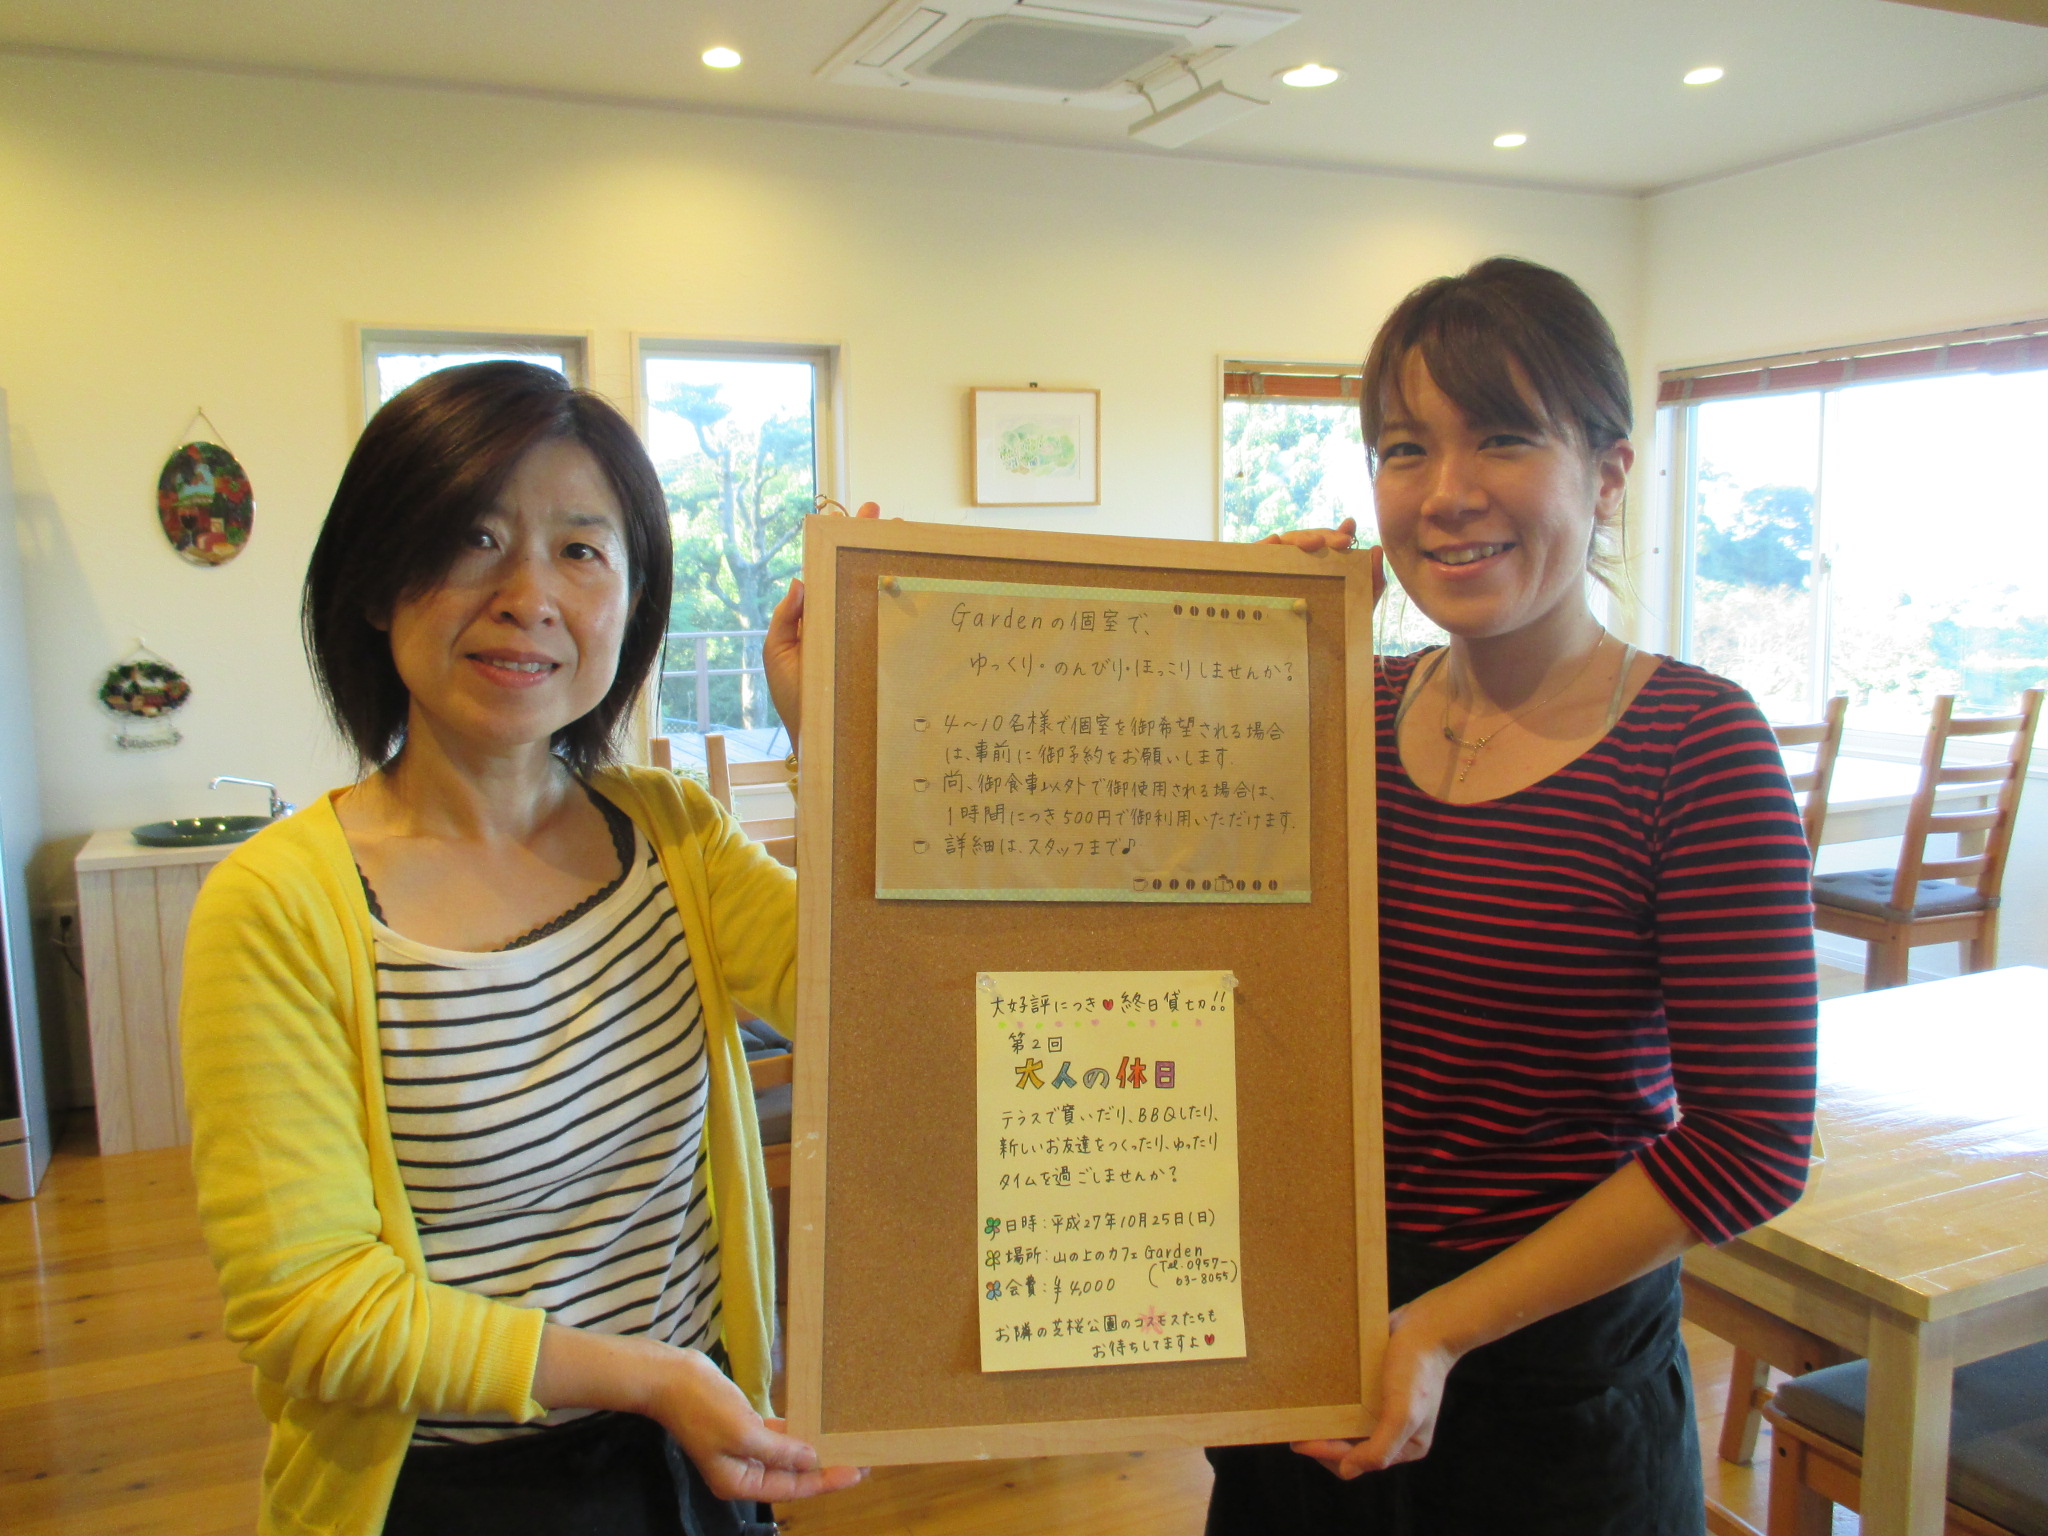 Gardenの個室で、
ゆっくり・のんびり・ほっこりしませんか？
4～10名様で個室を御希望される場合
は、事前に御予約をお願いします.
尚、御食事以外で御使用される場合は、
1時間につき500円で御利用いただけます.
詳細は、スタッフまで♪
大好評につき♥終日貸切!!
第2回
大人の休日
テラスで寛いだり、BBQしたり、
新しいお友達をつくったり、ゆったり
タイムを過ごしませんか？
日時：平成27年10月25日(日)
場所：山の上のカフェGarden
(Tel.0957-
63-8055)
会費：¥4,000
お隣の芝桜公園のコスモスたちも
お待ちしてますよ♥
Welcome